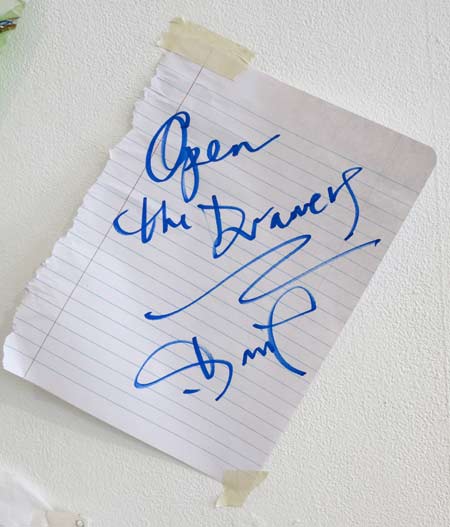 Open
the Drawers